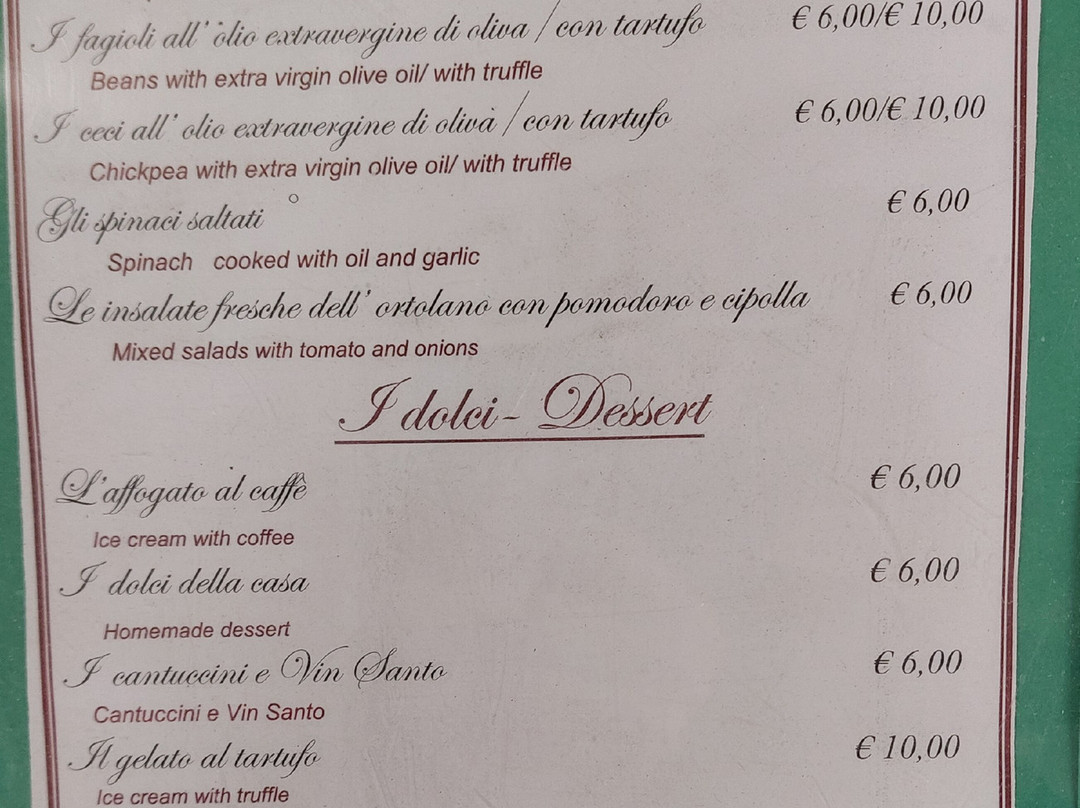 I fagioli all' olio extravergine di oliva / con tartufo € 6,00/€ 10,00
Beans with extra virgin olive oil/ with truffle
I ceci all' olio extravergine di oliva / con tartufo € 6,00/€ 10,00
Chickpea with extra virgin olive oil/ with truffle
Gli spinaci saltati € 6,00
Spinach cooked with oil and garlic
Le insalate fresche dell' ortolano con pomodoro e cipolla € 6,00
Mixed salads with tomato and onions
I dolci - Dessert
L'affogato al caffè € 6,00
Ice cream with coffee
I dolci della casa € 6,00
Homemade dessert
I cantuccini e Vin Santo € 6,00
Cantuccini e Vin Santo
Il gelato al tartufo € 10,00
Ice cream with truffle